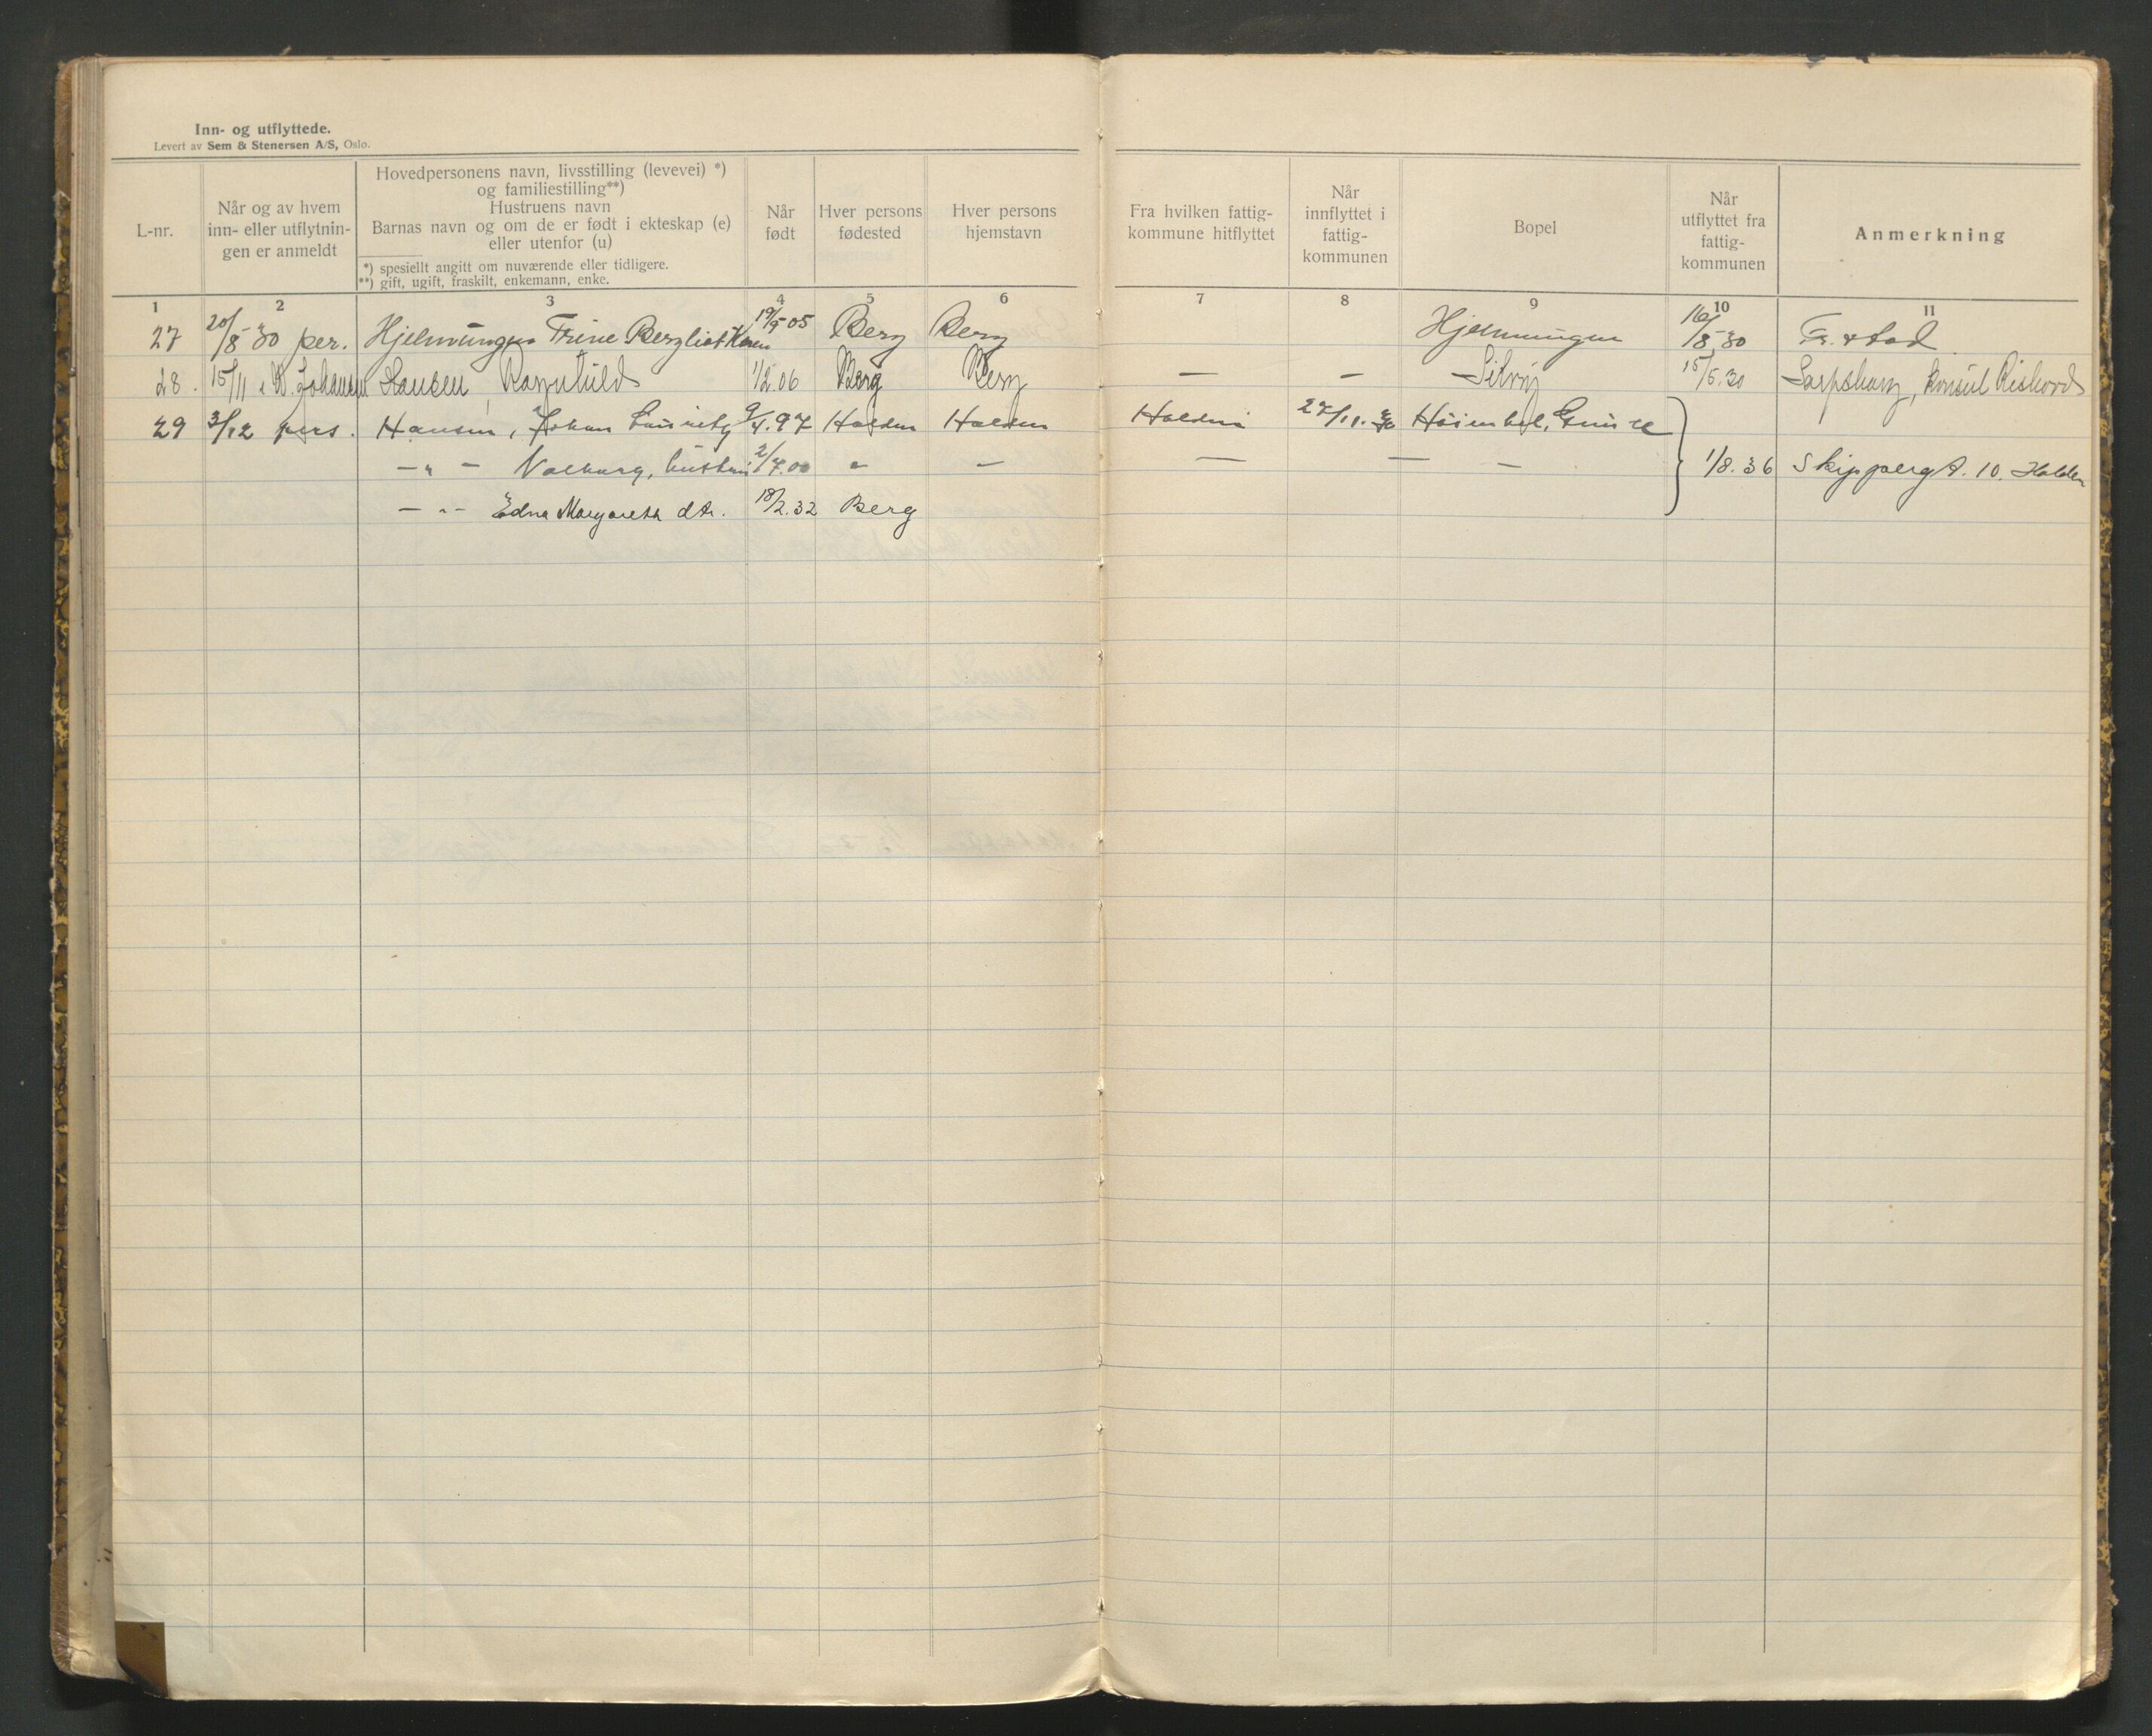 Inn- og utflyttede.
Levert av Sem & Stenersen A/S, Oslo.
L-nr.
Når og av hvem
inn- eller utflytnin-
gen er anmeldt
Hovedpersonens navn, livsstilling (levevei) *)
og familiestilling**)
Hustruens navn
Barnas navn og om de er født i ekteskap (e)
eller utenfor (u)
*) spesiellt angitt om nuværende eller tidligere.
**) gift, ugift, fraskilt, enkemann, enke.
Når
født
Hver persons
fødested
Hver persons
hjemstavn
Fra hvilken fattig-
kommune hitflyttet
Når
innflyttet i
fattig-
kommunen
Bopel
Når
utflyttet fra
fattig-
kommunen
Anmerkning
1 2 3 4 5 6 7 8 9 10 11
27 20/8-30 per. Hjelmungen Trine Bergliot Karen 19/9-05 Berg Berg — — Hjelmungen 16/8.30 Fr.stad
28. 15/11 Johansen Hansen, Ragnhild 1/2.06 Berg Berg — — 15/5.30 Sarpsborg, konsul
29 3/12 pers. Hansen, Johan 9/4.97 Halden Halden Halden 27/11. 30
-"- Valborg, hustru 2/7.00 " — — — — 1/8.36 Skippergt. 10. Halden
-"- Edna Margareth dtr. 18/2.32 Berg